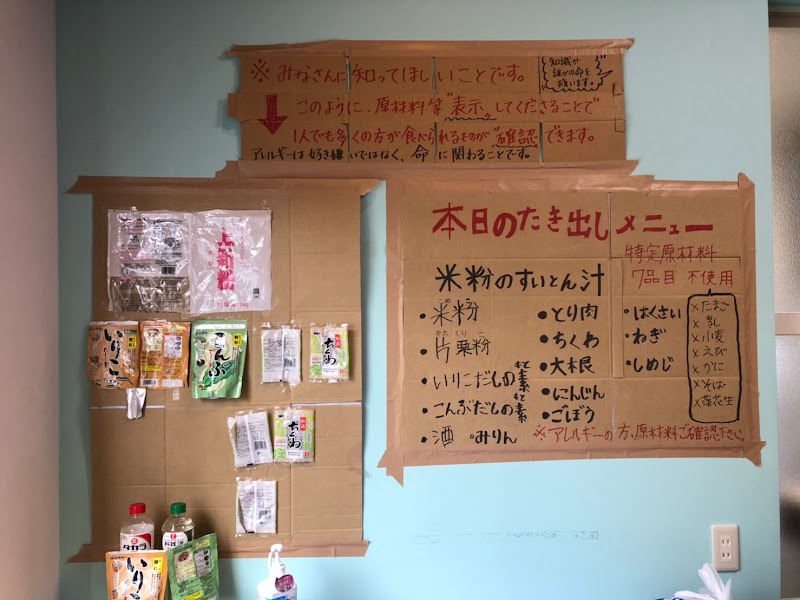 ※みなさんに知ってほしいことです。
知識が
誰かの命を
救います。
このように、原材料等"表示"してくださることで
1人でも多くの方が食べられるものが"確認"できます。
アレルギーは好き嫌いではなく、命に関わることです。
本日のたき出しメニュー
特定原材料
7品目 不使用
米粉のすいとん汁
・米粉
かたくりこ
・片栗粉
・いりこだしの素
・こんぶだしの素
・酒 ・みりん
・とり肉
・ちくわ
・大根
・にんじん
・ごぼう
・はくさい
・ねぎ
・しめじ
×たまご
×乳
×小麦
×えび
×かに
×そば
×落花生
※アレルギーの方、原材料ご確認下さい。
上新粉
いりこ
こんぶ
ちくわ
ちくわ
タカラ
いりこ